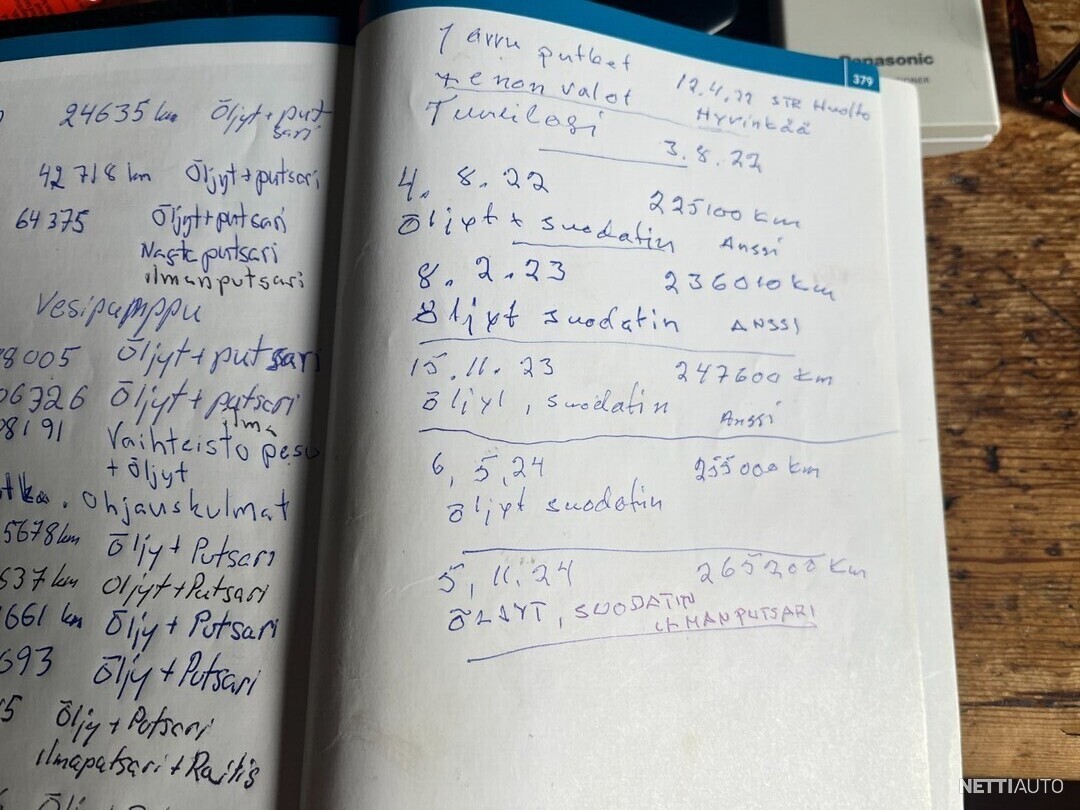 24635 km Öljyt + put
sari
42 718 km Öljyt + putsari
64 375 Öljyt + putsari
Nasta putsari
ilmanputsari
Vesipumppu
8005 Öljyt + putsari
06326 Öljyt + putsari
ilma
08191 Vaihteisto pesu
+ Öljyt
Ohjauskulmat
5678 km Öljy + Putsari
537 km Öljyt + Putsari
661 km Öljy + Putsari
693 Öljy + Putsari
5 Öljy + Putsari
ilmaputsari + Raitis
Panasonic
379
Jarru putket
xenon valot 12.4.22 STR Huolto
Hyvinkää
3.8.22
4. 8. 22 225100 km
Öljyt + suodatin Anssi
8. 2. 23 236010 km
Öljyt suodatin ANSSI
15. 11. 23 247600 km
Öljyt, suodatin Anssi
6, 5, 24 255000 km
Öljyt suodatin
5, 11. 24 265200 km
ÖLJYT, SUODATIN
ILMANPUTSARI
NETTIAUTO